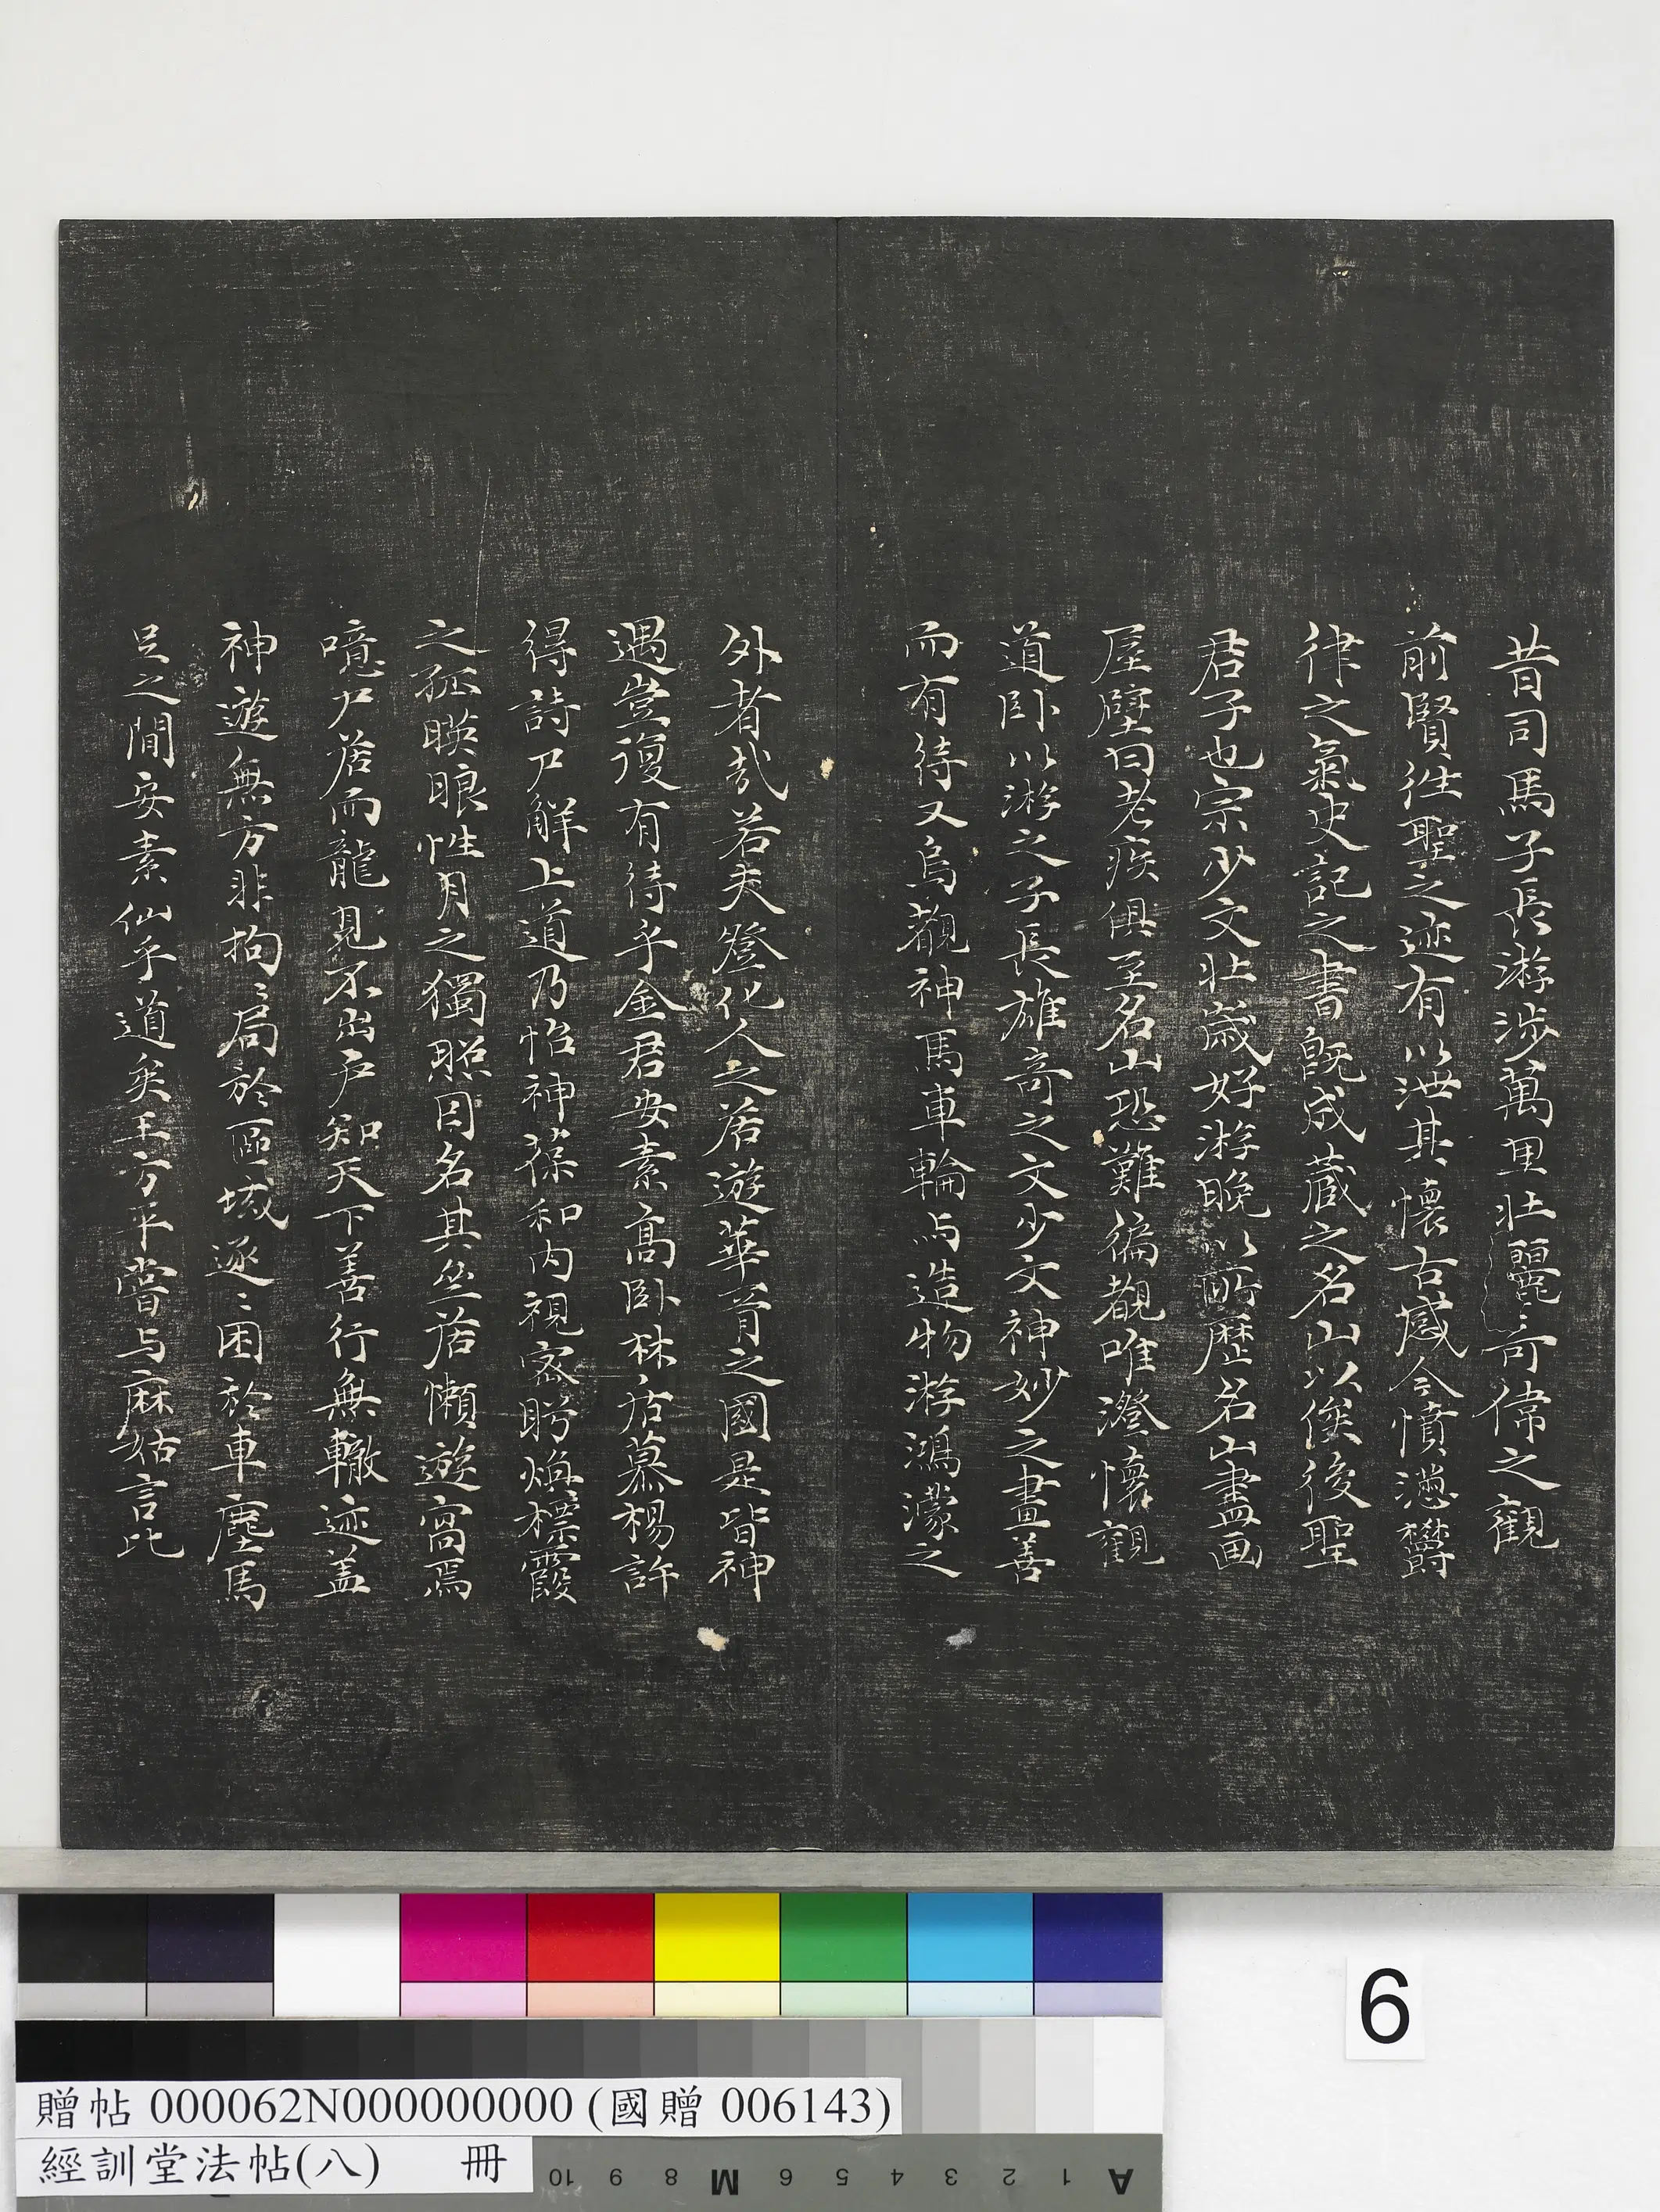 昔司馬子長游涉萬里壯麗奇偉之觀
前賢徃聖之迹有以泄其懷古感今憤懣欝
律之氣史記之書旣成蔵之名山以俟後聖
君子也宗少文壯歲好游晚以所歷名山畫画
屋壁曰老疾俱至名山恐難徧覩唯澄懷觀
道卧以游之子長雄奇之文少文神妙之畫善
而有待又烏覩神馬車輪与造物游鴻濛之
外者哉若夫登化人之居遊華胥之國是皆神
遇豈復有待乎金君安素高卧林居慕楊許
得詩尸解上道乃怡神葆和內視密盼煥標霞
之孤暎眼性月之獨照因名其丛居懶遊窩焉
噫尸居而龍見不出戶知天下善行無轍迹盖
神遊無方非拘〻局於區域逐〻困於車塵馬
足之間安素仙乎道矣王方平嘗与麻姑言比
6
贈帖 000062N000000000 (國贈 006143)
經訓堂法帖(八) 冊
10 9 8 M 6 5 4 3 2 1 A